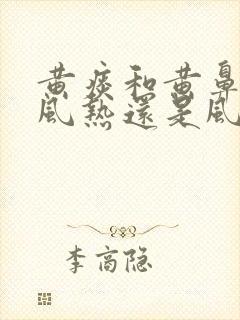 黄痰和黄鼻
风热還是风
李商隐